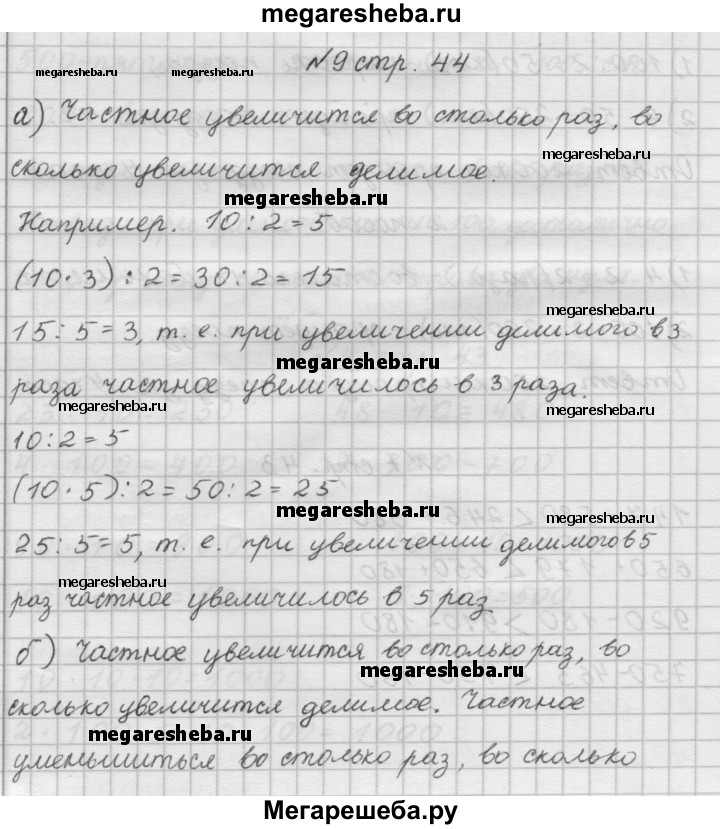 megaresheba.ru
№9 стр. 44
megaresheba.ru megaresheba.ru
а) Частное увеличится во столько раз, во
megaresheba.ru
сколько увеличится делимое.
megaresheba.ru
Например. 10 : 2 = 5
(10 · 3) : 2 = 30 : 2 = 15
megaresheba.ru
15 : 5 = 3, т. е. при увеличении делимого в 3
megaresheba.ru
раза частное увеличилось в 3 раза.
megaresheba.ru megaresheba.ru
10 : 2 = 5
(10 · 5) : 2 = 50 : 2 = 25
megaresheba.ru
25 : 5 = 5, т. е. при увеличении делимого в 5
megaresheba.ru megaresheba.ru
раз частное увеличилось в 5 раз
б) Частное увеличится во столько раз, во
megaresheba.ru
сколько увеличится делимое. Частное
megaresheba.ru
уменьшиться во столько раз, во сколько
Мегарешеба.ру